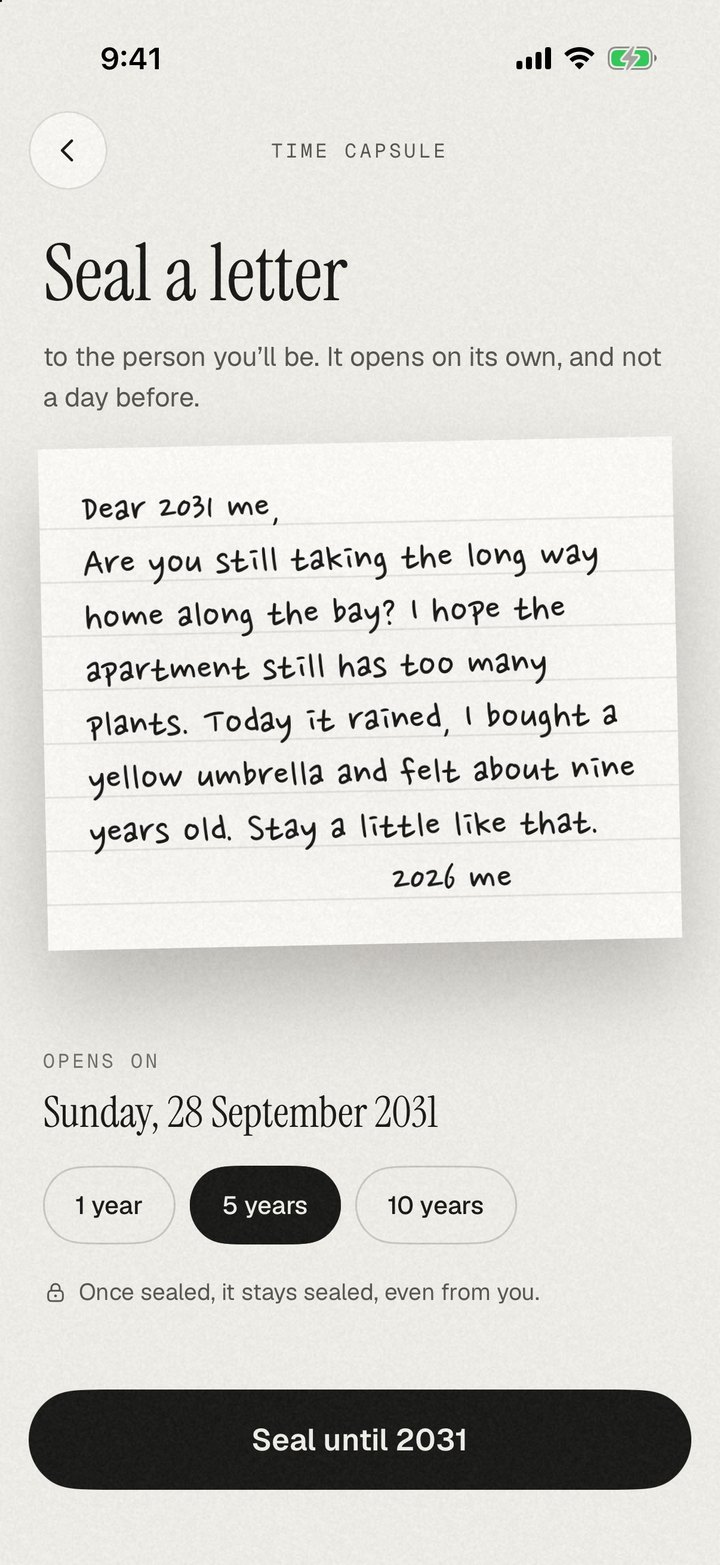 9:41
TIME CAPSULE
Seal a letter
to the person you’ll be. It opens on its own, and not
a day before.
Dear 2031 me,
Are you still taking the long way
home along the bay? I hope the
apartment still has too many
plants. Today it rained, I bought a
yellow umbrella and felt about nine
years old. Stay a little like that.
2026 me
OPENS ON
Sunday, 28 September 2031
1 year
5 years
10 years
Once sealed, it stays sealed, even from you.
Seal until 2031